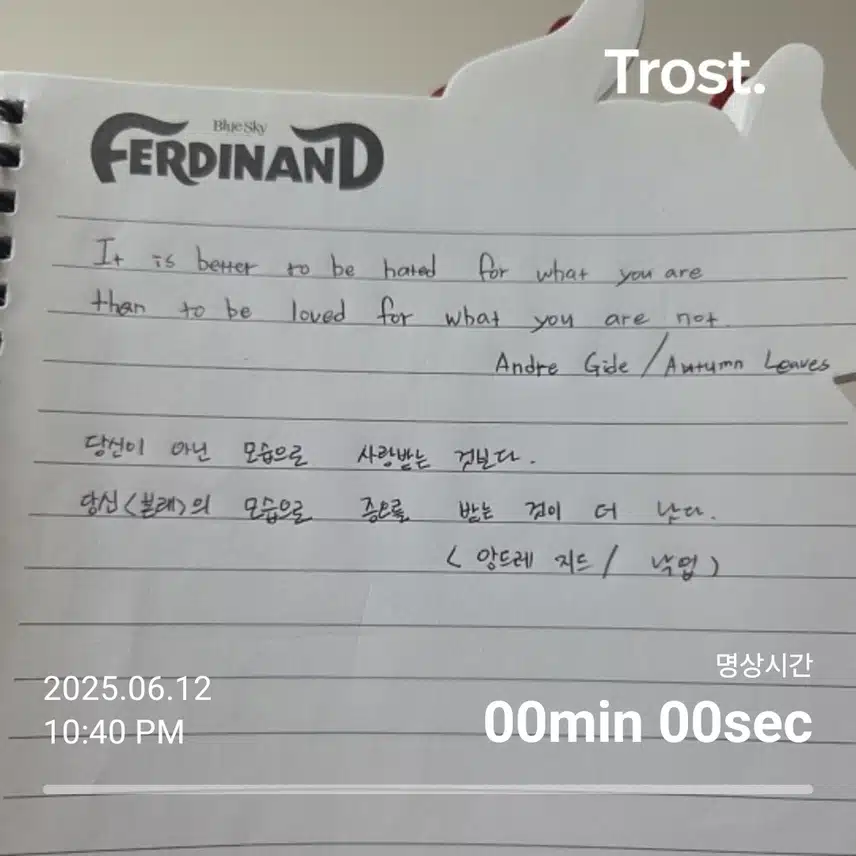 Trost.
Blue Sky
FERDINAND
It is better to be hated for what you are
than to be loved for what you are not.
Andre Gide / Autumn Leaves
당신이 아닌 모습으로 사랑받는 것보다.
당신<본래>의 모습으로 증오를 받는 것이 더 낫다.
< 앙드레 지드 / 낙엽 )
명상시간
2025.06.12
00min 00sec
10:40 PM